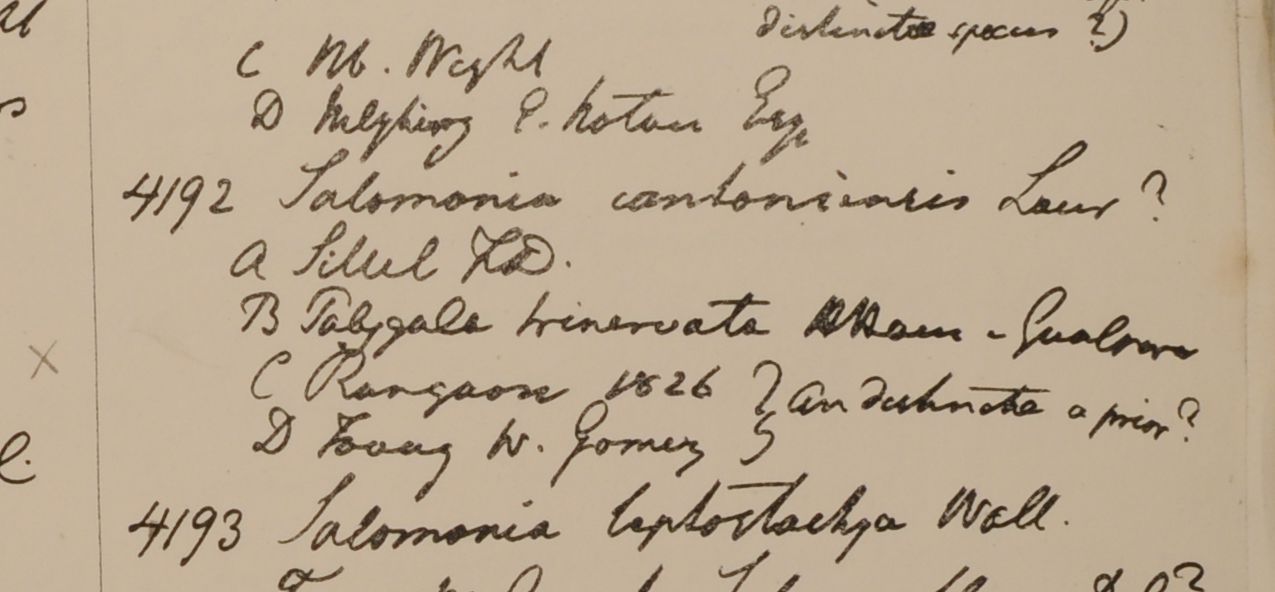 distincta species ?)
C Hb. Wight
D E. Esq
4192 Salomonia cantoniensis Lour ?
A Sillet F.D.
B Polygala trinervata Ham - Gualpara
C Rangoon 1826 } an distincta a prior ?
D Tavoy W. Gomez }
4193 Salomonia leptostachya Wall.